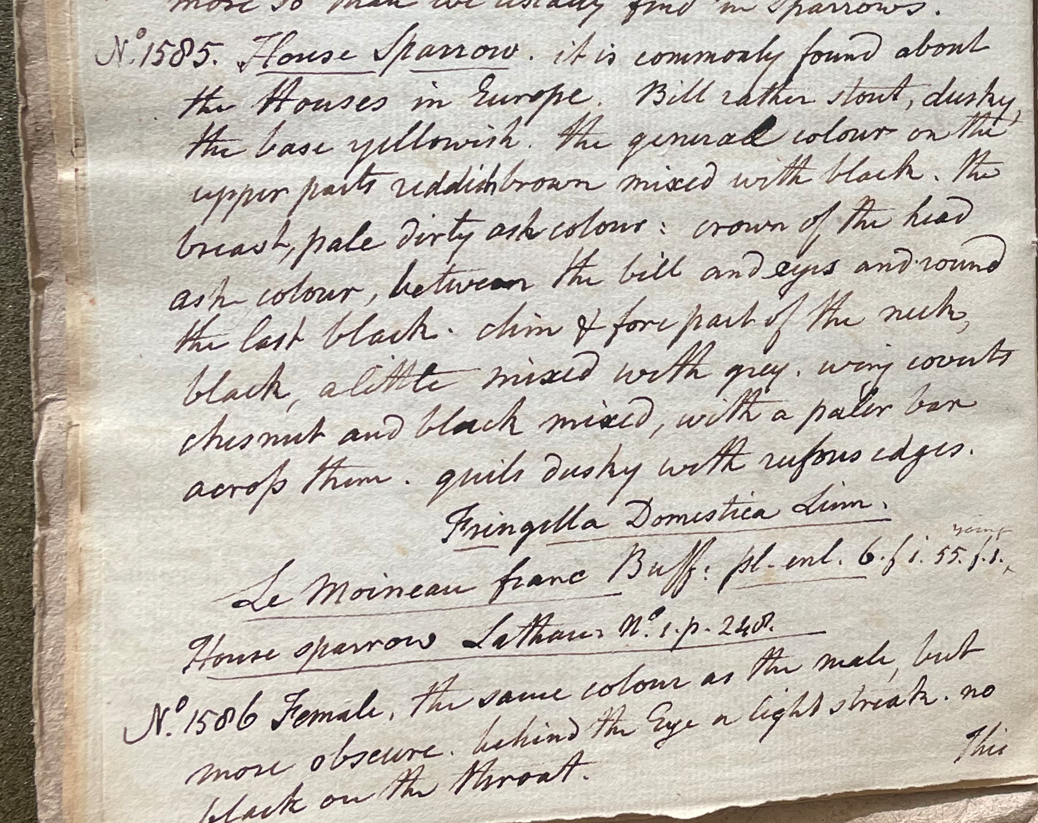 more so than we usually find in sparrows.
No. 1585. House Sparrow. it is commonly found about
the Houses in Europe. Bill rather stout, dusky,
the base yellowish. the general colour on the
upper parts reddish brown mixed with black. the
breast, pale dirty ash colour: crown of the head
ash colour, between the bill and eyes and round
the last black. chin & fore part of the neck,
black, a little mixed with grey. wing coverts
chesnut and black mixed, with a paler bar
across them. quils dusky with rufous edges.
Fringilla Domestica Linn.
Le Moineau franc Buff: pl. enl. 6. f 1. 55. f. 1. young
House sparrow Latham No. 1. p. 248.
No. 1586 Female. the same colour as the male, but
more obscure. behind the Eye a light streak. no
black on the throat.
This